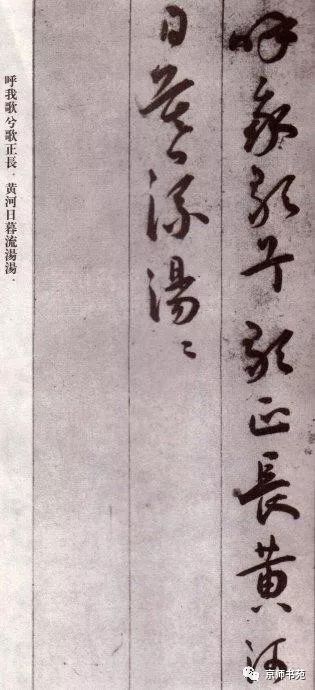 呼我歌兮歌正長黄河
日暮流湯〻
呼我歌兮歌正長．黄河日暮流湯湯．
京师书苑